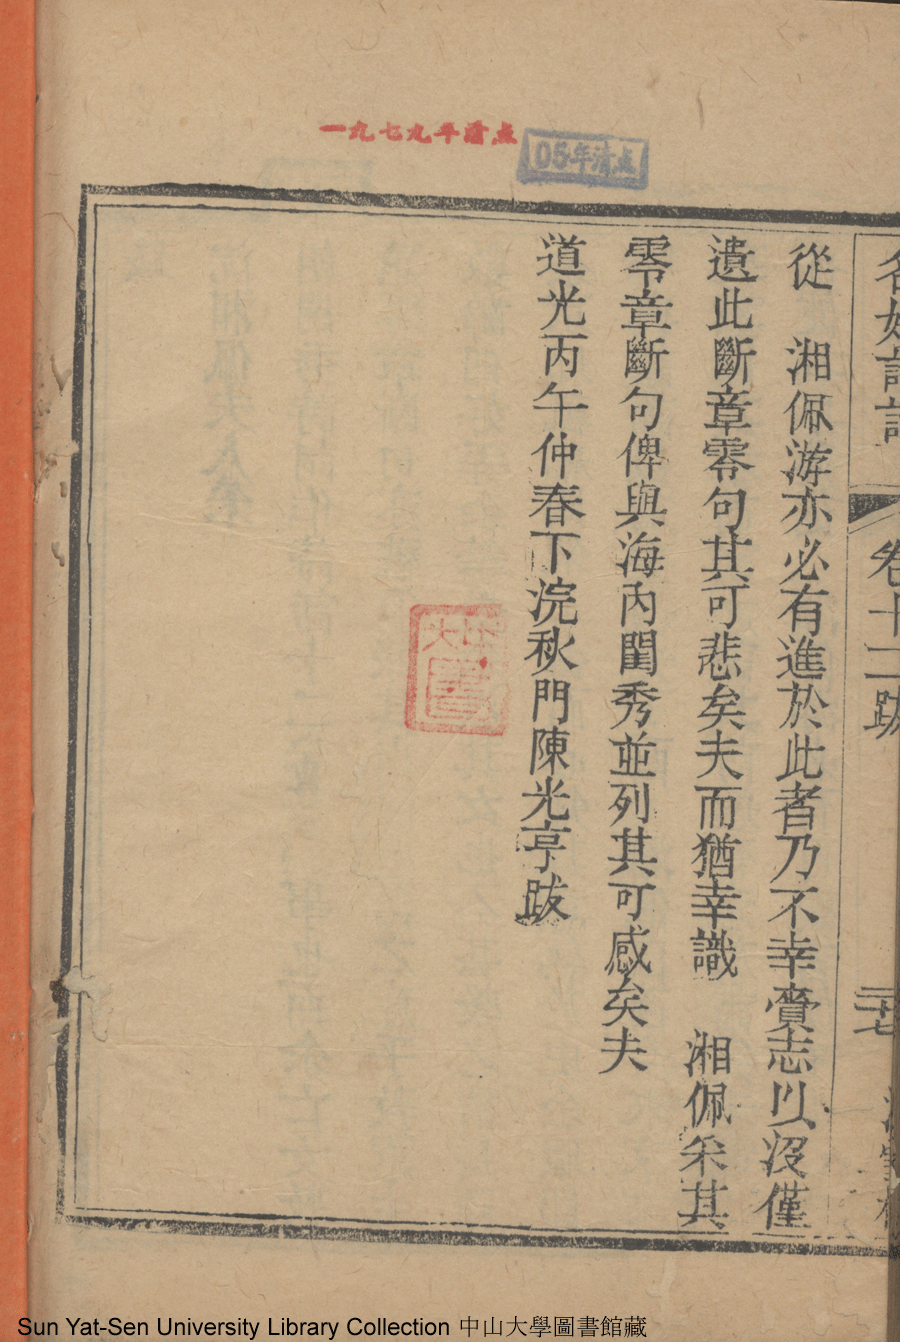 一九七九年清点
05年清点
名媛詩話
卷十二跋
二十七
從 湘佩游亦必有進於此者乃不幸賷志以沒僅
遺此斷章零句其可悲矣夫而猶幸識 湘佩采其
零章斷句俾與海內閨秀並列其可感矣夫
道光丙午仲春下浣秋門陳光亨跋
Sun Yat-Sen University Library Collection 中山大學圖書館藏